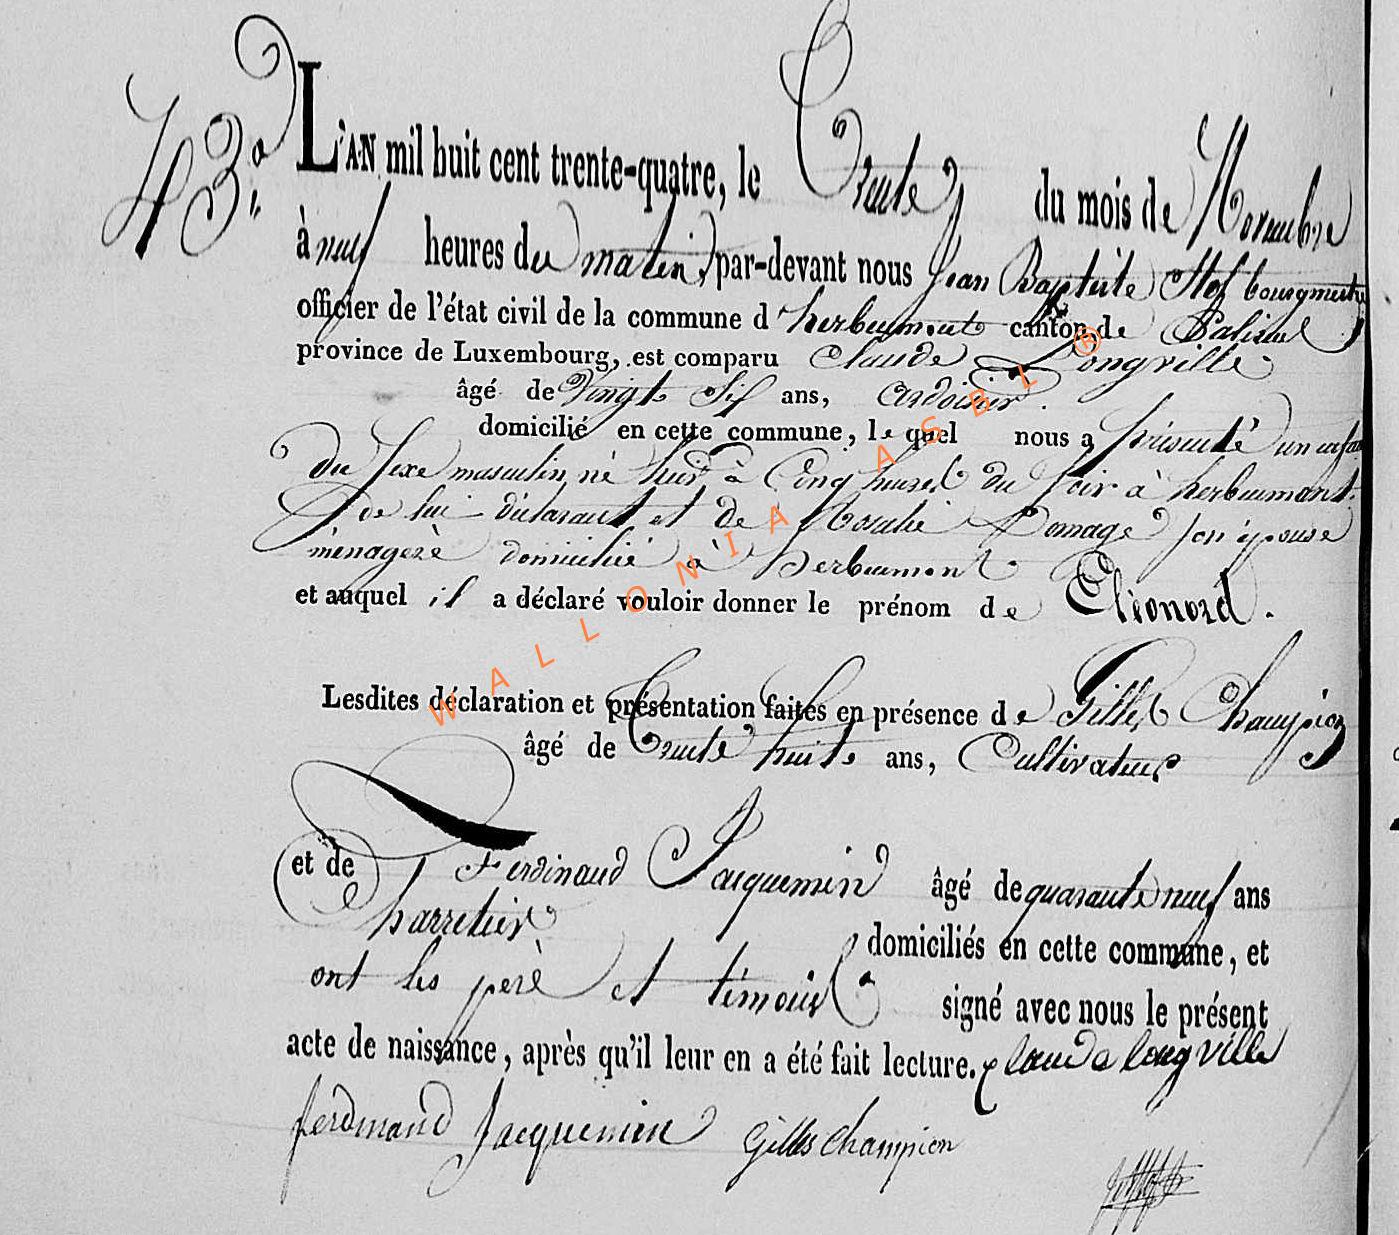 43.e
L'AN mil huit cent trente-quatre, le Trente du mois de Novembre
à neuf heures du matin, par-devant nous Jean Baptiste Hof bourgmestre
officier de l'état civil de la commune d'herbeumont canton de Paliseul,
province de Luxembourg, est comparu Claude Longville
âgé de Vingt Six ans, ardoisier.
domicilié en cette commune, lequel nous a présenté un enfant
du sexe masculin né hier à Cinq heures du soir à herbeumont.
de lui déclarant et de Rosalie Pomage son épouse
ménagère domicilié à herbeumont
et auquel il a déclaré vouloir donner le prénom de Eléonord.
Lesdites déclaration et présentation faites en présence de Gilles Champion
âgé de Trente huite ans, Cultivateur
et de Ferdinand Jacquemin âgé de quarante neuf ans
Charretier domiciliés en cette commune, et
ont les père et témoins signé avec nous le présent
acte de naissance, après qu'il leur en a été fait lecture. Claude longville
ferdinand Jacquemin Gilles Champion
WALLONIA ASBL ®